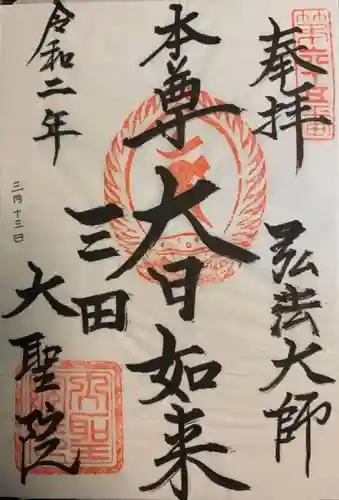 奉拝
弘法大師
本尊大日如来
三田
大聖院
令和二年
三月十三日